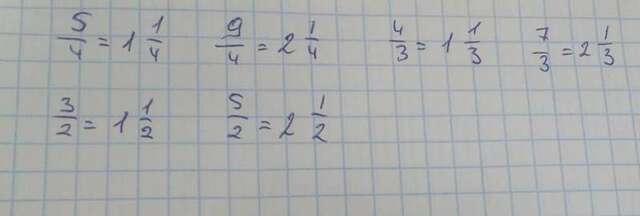 5/4 = 1 1/4 9/4 = 2 1/4 4/3 = 1 1/3 7/3 = 2 1/3
3/2 = 1 1/2 5/2 = 2 1/2